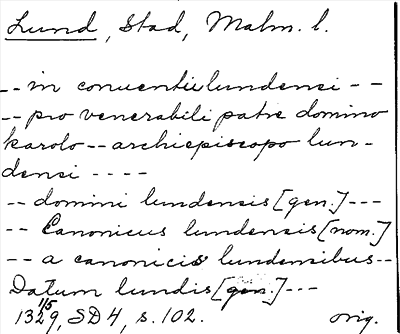 Lund, Stad, Malm. l.
-- in conuentu lundensi --
-- pro venerabili patre domino
karolo -- archiepiscopo lun-
densi ----
-- domini lundensis [gen.] ---
-- Canonicus lundensis [nom.]
-- a canonicis lundensibus --
Datum lundis [gen.] ---
1329 11/5, SD4, s. 102. orig.